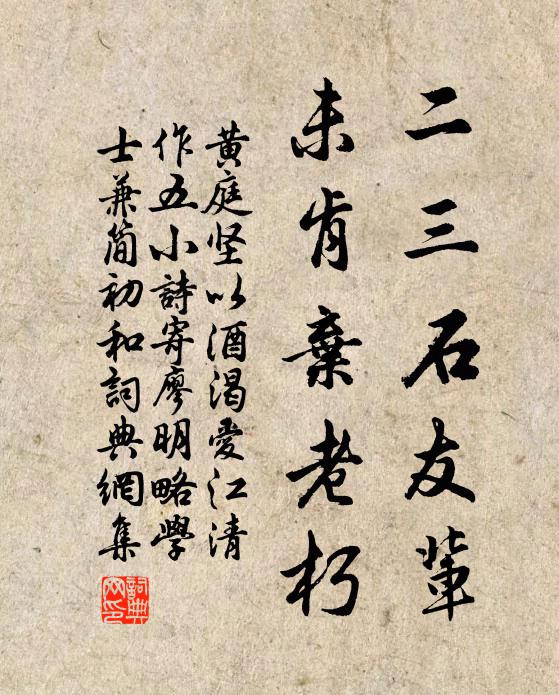 二三石友輩
未肯棄老朽
黃庭坚以酒渴愛江清
作五小詩寄廖明略學
士兼簡初和詞典網集
詞典
网印